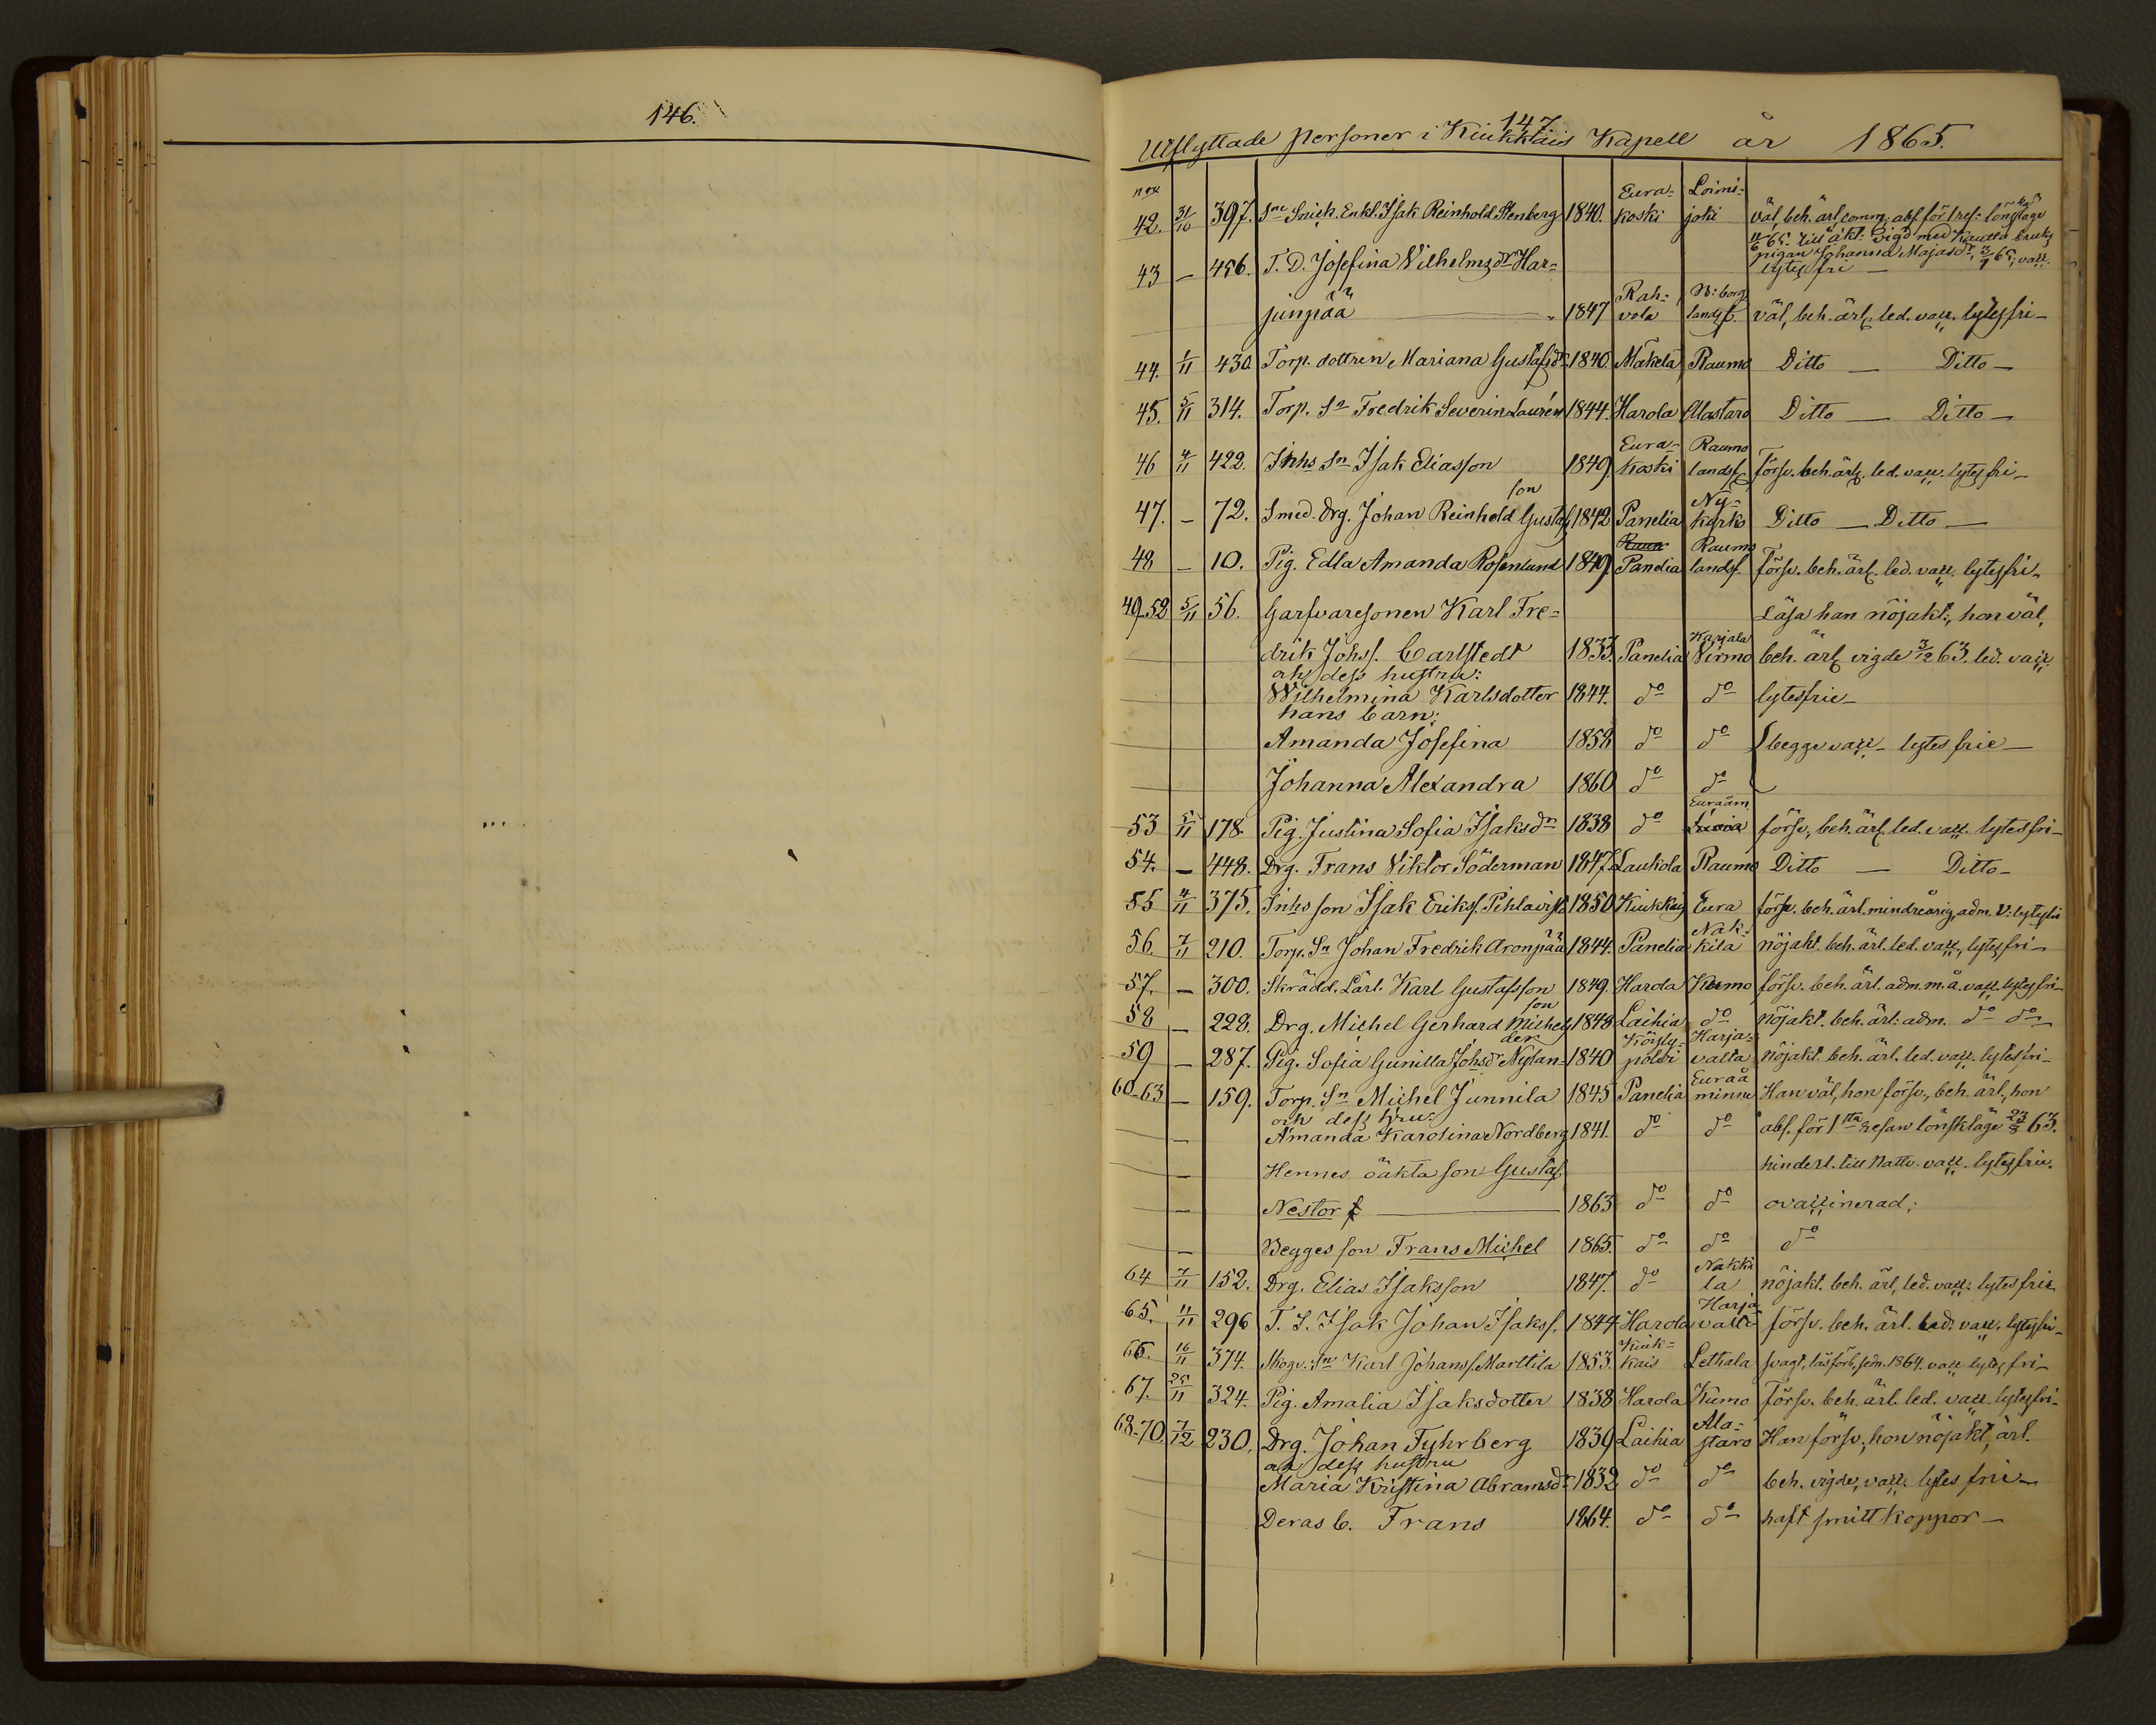 146.
147
Utflyttade personer i Kiukkais Kapell år 1865.
nox
42. 31/10 397. Sne Snick. Enkl. Isak Reinhold Stenberg 1840. Eura- koski Loimi- joki väl, beh. ärl. comm. abs. för 1 res: lönskläge
11/6 65. till äkt: vigd med Kautta bruks
pigan Johanna Majasdr, 3/9 65, vacc.
lytesfri —
43 — 456. T. D. Josefina Vilhelmsdr Har-
junpää — 1847 Rah- vola N: borgs lands f. väl, beh. ärl. led. vacc. lytesfri —
44. 1/11 430. Torp. dottren Mariana Gustafsdr 1840. Mäkelä Raumo Ditto — Ditto —
45. 5/11 314. Torp. Sn Fredrik Severin Laurén 1844. Harola Alastaro Ditto — Ditto —
46 4/11 422. Inhs Sn Isak Eliasson 1849. Eura- koski Raumo landsf. försv. beh. ärl. led. vacc. lytesfri —
47. — 72. Smed. Drg. Johan Reinhold Gustafsson 1842 Panelia Ny- kyrko Ditto — Ditto —
48 — 10. Pig. Edla Amanda Rosenlund 1849. Panelia Raumo landsf. försv. beh. ärl. led. vacc. lytesfri —
49-52 5/11 56. Garfvaresonen Karl Fre- Läsa han nöjakt:, hon väl,
drik Johss. Carlstedt 1833. Panelia Karjala Virmo beh. ärl. vigde 3/12 63. led. vacc.
och dess hustru:
Wilhelmina Karlsdotter 1844. do do lytesfrie —
hans barn:
Amanda Josefina 1858 do do begge vacc — lytes frie —
Johanna Alexandra 1860 do do
53 5/11 178. Pig. Justina Sofia Isaksdr 1838 do Euraåm försv, beh. ärl. led. vacc. lytesfri —
54. — 448. Drg. Frans Viktor Söderman 1847. Laukola Raumo Ditto — Ditto —
55 4/11 375. Inhs son Isak Erikss. Pihlavisto 1850 Kiukkais Eura försv. beh. ärl. mindreårig, adm. V: lytesfri
56. 7/11 210. Torp. Sn Johan Fredrik Aronpää 1844. Panelia Nak- kila nöjakt. beh. ärl. led. vacc, lytesfri —
57. — 300. Skrädd. Lärl. Karl Gustafsson 1849. Harola Kumo försv. beh. ärl. adm. m.å. vacc. lytesfri —
58 — 228. Drg. Michel Gerhard Michelsson 1848 Laihia do nöjakt. beh. ärl: adm. do do
59 — 287. Pig. Sofia Gunilla Johsdr Nylander 1840 Köyly- poldi Harja- valta nöjakt. beh. ärl. led. vacc. lytesfri —
60-63 — 159. Torp. Sn Michel Junnila 1845 Panelia Euraå minne Han väl, hon försv., beh. ärl, hon
och dess hru:
— Amanda Karolina Nordberg 1841. do do abs. för 1sta resan lönskläge 23/8 63.
— Hennes oäkta son Gustaf hinderl. till Nattv. vacc. lytesfrie.
— Nestor — 1863 do do ovaccinerad;
— Begges son Frans Michel 1865. do do do
64 7/11 152. Drg. Elias Isaksson 1847. do Nakki la nöjakt. beh. ärl, led. vacc: lytesfrie
65. 11/11 296 T. S. Isak Johan Isakss. 1844 Harola Harja valta försv. beh. ärl. led. vacc. lytesfri —
66. 16/11 374. Skogv. Sn Karl Johanss. Marttila 1853. Kiuk- kais Lethala svagt, läsförh. sedn. 1864. vacc lytesfri —
67. 25/11 324. Pig. Amalia Isaksdotter 1838 Harola Kumo försv. beh. ärl. led. vacc. lytesfri —
68-70. 7/12 230. Drg. Johan Fyhrberg 1839 Laihia Ala- staro Han försv, hon nöjakt, ärl.
och dess hustru
Maria Kristina Abramsdr 1832 do do beh. vigde, vacc. lytes frie —
Deras b. Frans 1864. do do haft smitt koppor —